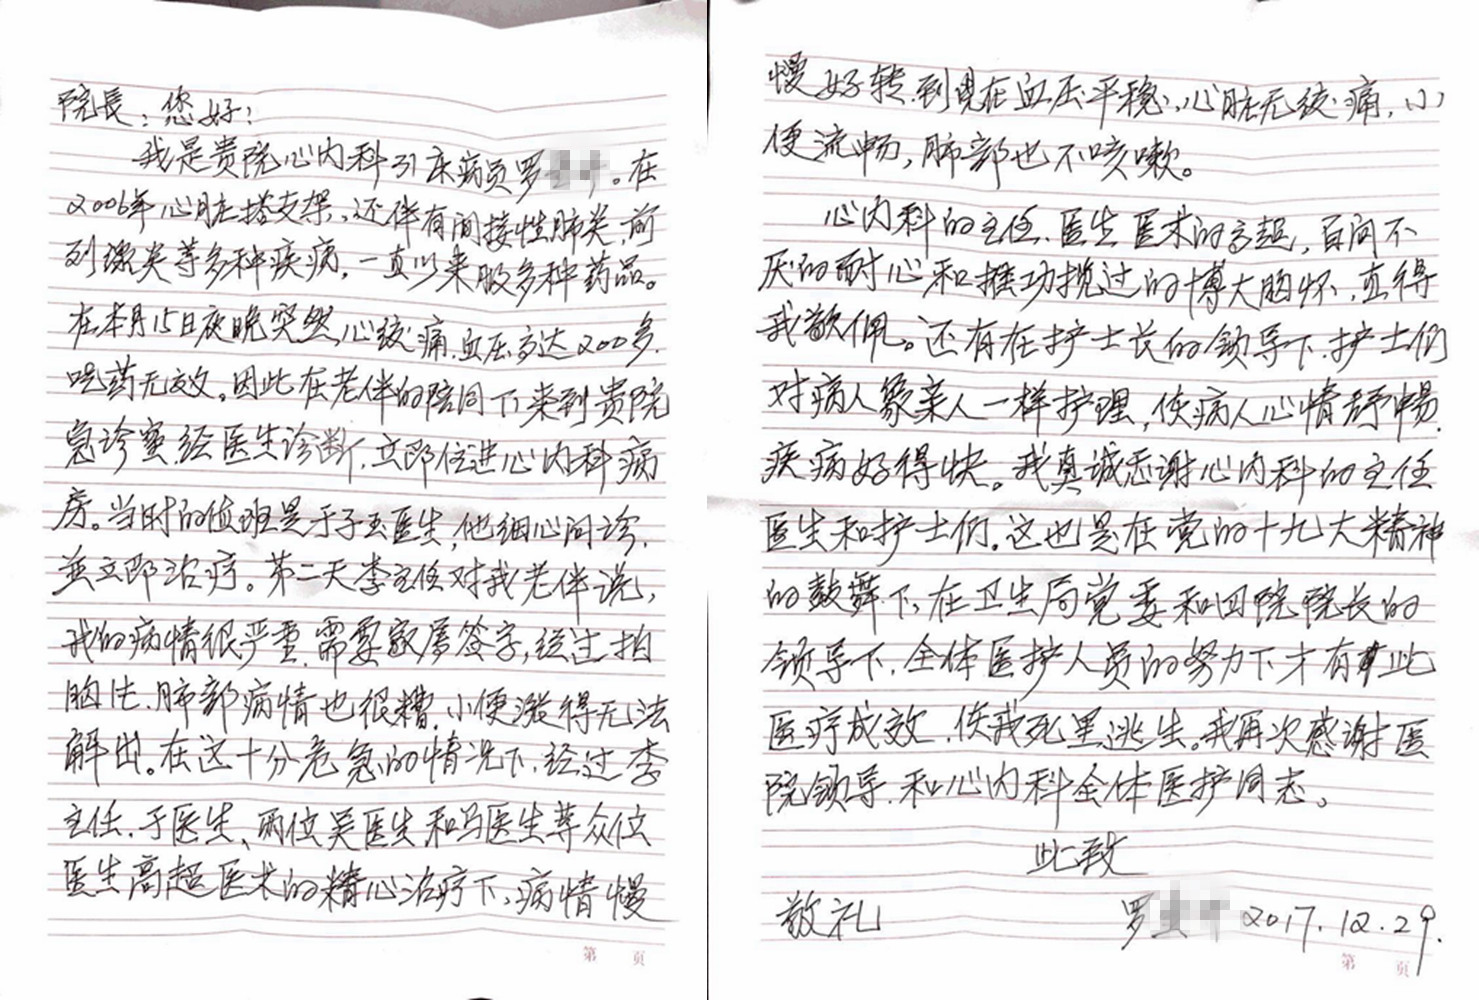 院長：您好！
我是贵院心内科31床病员罗 。在
2006年心脏搭支架，还伴有间接性肺炎，前
列腺炎等多种疾病，一直以来服多种药品。
在本月15日夜晚突然心绞痛，血压高达200多，
吃药无效。因此在老伴的陪同下来到贵院
急诊室，经医生诊断，立即住进心内科病
房。当时的值班是于子玉医生，他细心问诊，
并立即治疗。第二天李主任对我老伴说，
我的病情很严重，需要家属签字，经过拍
胸片，肺部病情也很糟，小便涨得无法
解出。在这十分危急的情况下，经过李
主任、于医生、两位吴医生和马医生等众位
医生高超医术的精心治疗下，病情慢
第 页
慢好转，到现在血压平稳，心脏无绞痛，小
便流畅，肺部也不咳嗽。
心内科的主任、医生医术的高超，百问不
厌的耐心和推功揽过的博大胸怀，真得
我歆佩。还有在护士长的领导下，护士们
对病人象亲人一样护理，使病人心情舒畅，
疾病好得快。我真诚感谢心内科的主任
医生和护士们。这也是在党的十九大精神
的鼓舞下，在卫生局党委和四院院长的
领导下，全体医护人员的努力下才有此
医疗成效，使我死里逃生。我再次感谢医
院领导和心内科全体医护同志。
此致
敬礼
罗 2017.12.29.
第 页